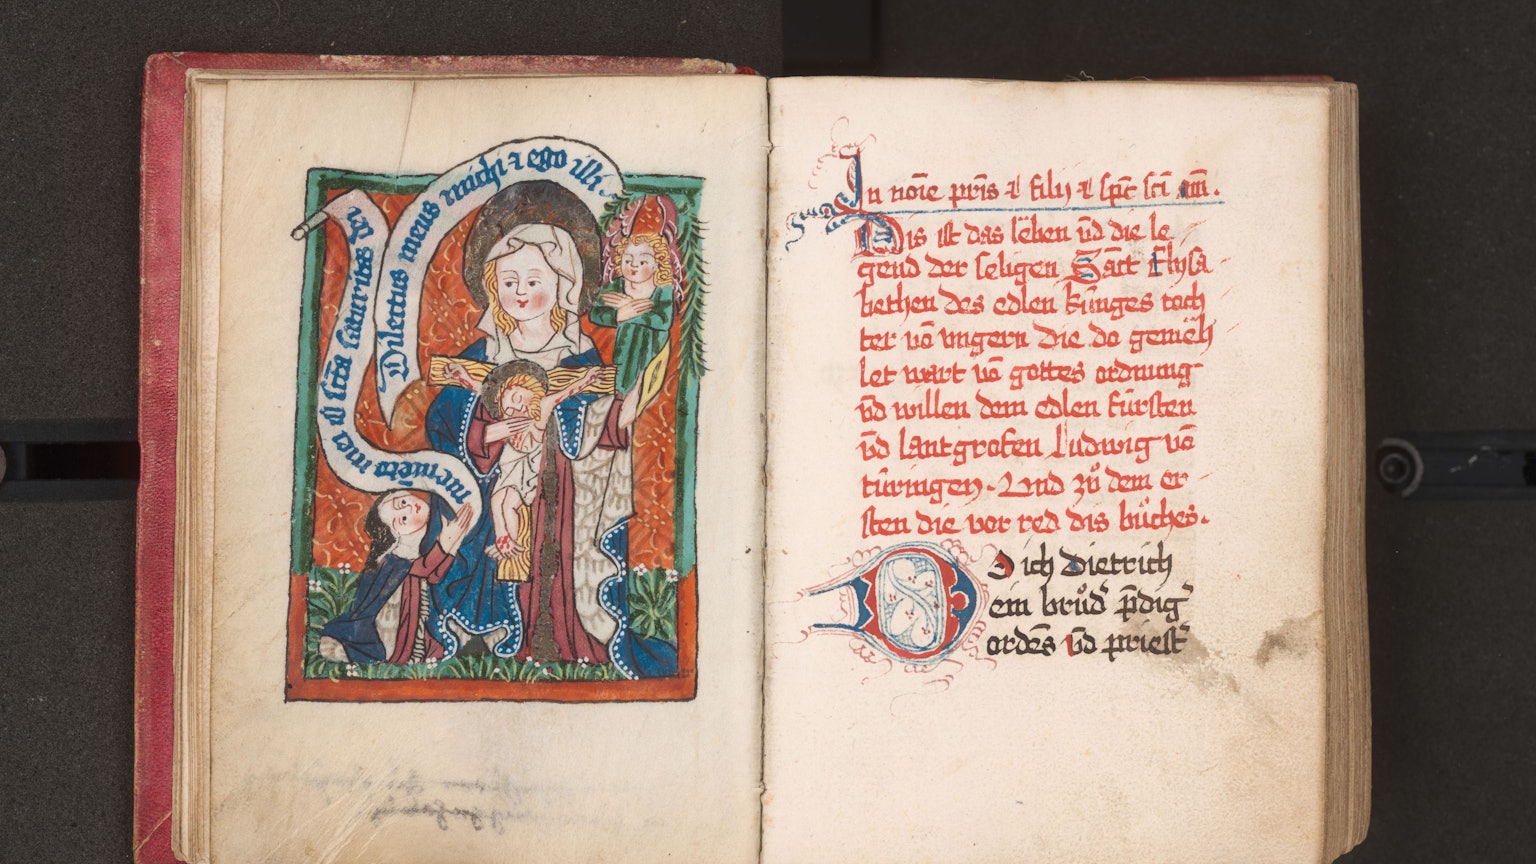 Dilectus meus michi ⁊ ego illi
In noīe pr̄is ⁊ filij ⁊ sp̄c sc̄i am̄.
Dis ist das leben vn̄d die le
gend der seligen Sant Elysa
bethen des edlen künges toch
ter vō vngern Die do gemeh
let wart vō gottes ordnung
vn̄d willen dem edlen fürsten
vn̄d lantgrofen Ludwig vō
türingen. Vnd zů dem er
sten die vor red dis bůches.
Do ich Dietrich
ein brůd' p̄dig'
ordēs vn̄d priest'